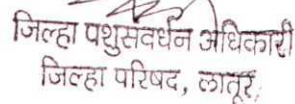 जिल्हा पशुसवर्धन अधिकारी
जिल्हा परिषद, लातूर